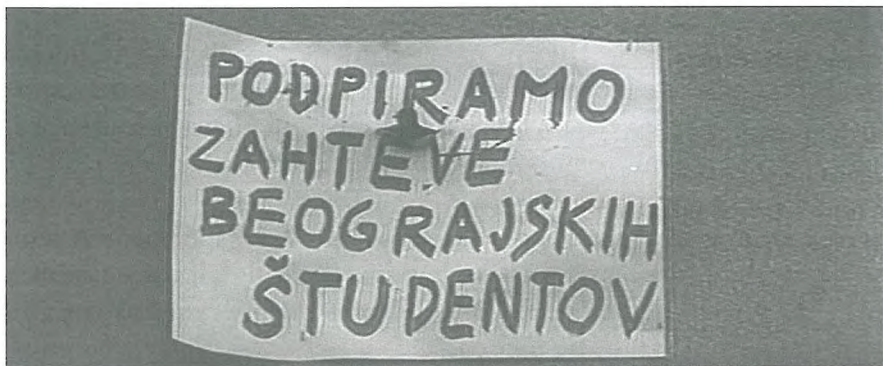 PODPIRAMO
ZAHTEVE
BEOGRAJSKIH
ŠTUDENTOV